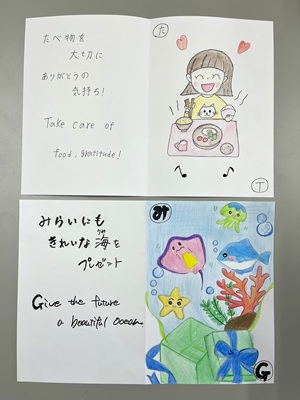 たべ物を
大切に
ありがとうの
気持ち!
Take care of
food, gratitude!
た
T
みらいにも
きれいな海を
うみ
プレゼント
Give the future
a beautiful ocean.
み
G